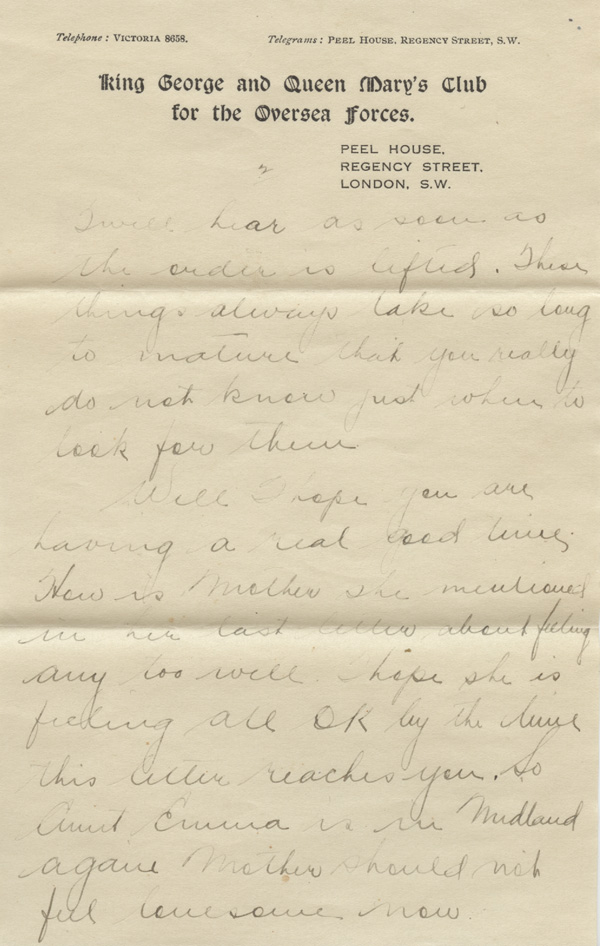 Telephone: VICTORIA 8658. Telegrams: PEEL HOUSE, REGENCY STREET, S.W.
King George and Queen Mary's Club
for the Oversea Forces.
PEEL HOUSE,
REGENCY STREET,
LONDON, S.W.
2
I will hear as soon as
the order is lifted. These
things always take so long
to mature that you really
do not know just when to
look for them
Well I hope you are
having a real good time.
How is Mother she mentioned
in her last letter about feeling
any too well. I hope she is
feeling all OK by the time
this letter reaches you. So
Aunt Emma is in Midland
again Mother should not
feel lonesome now.